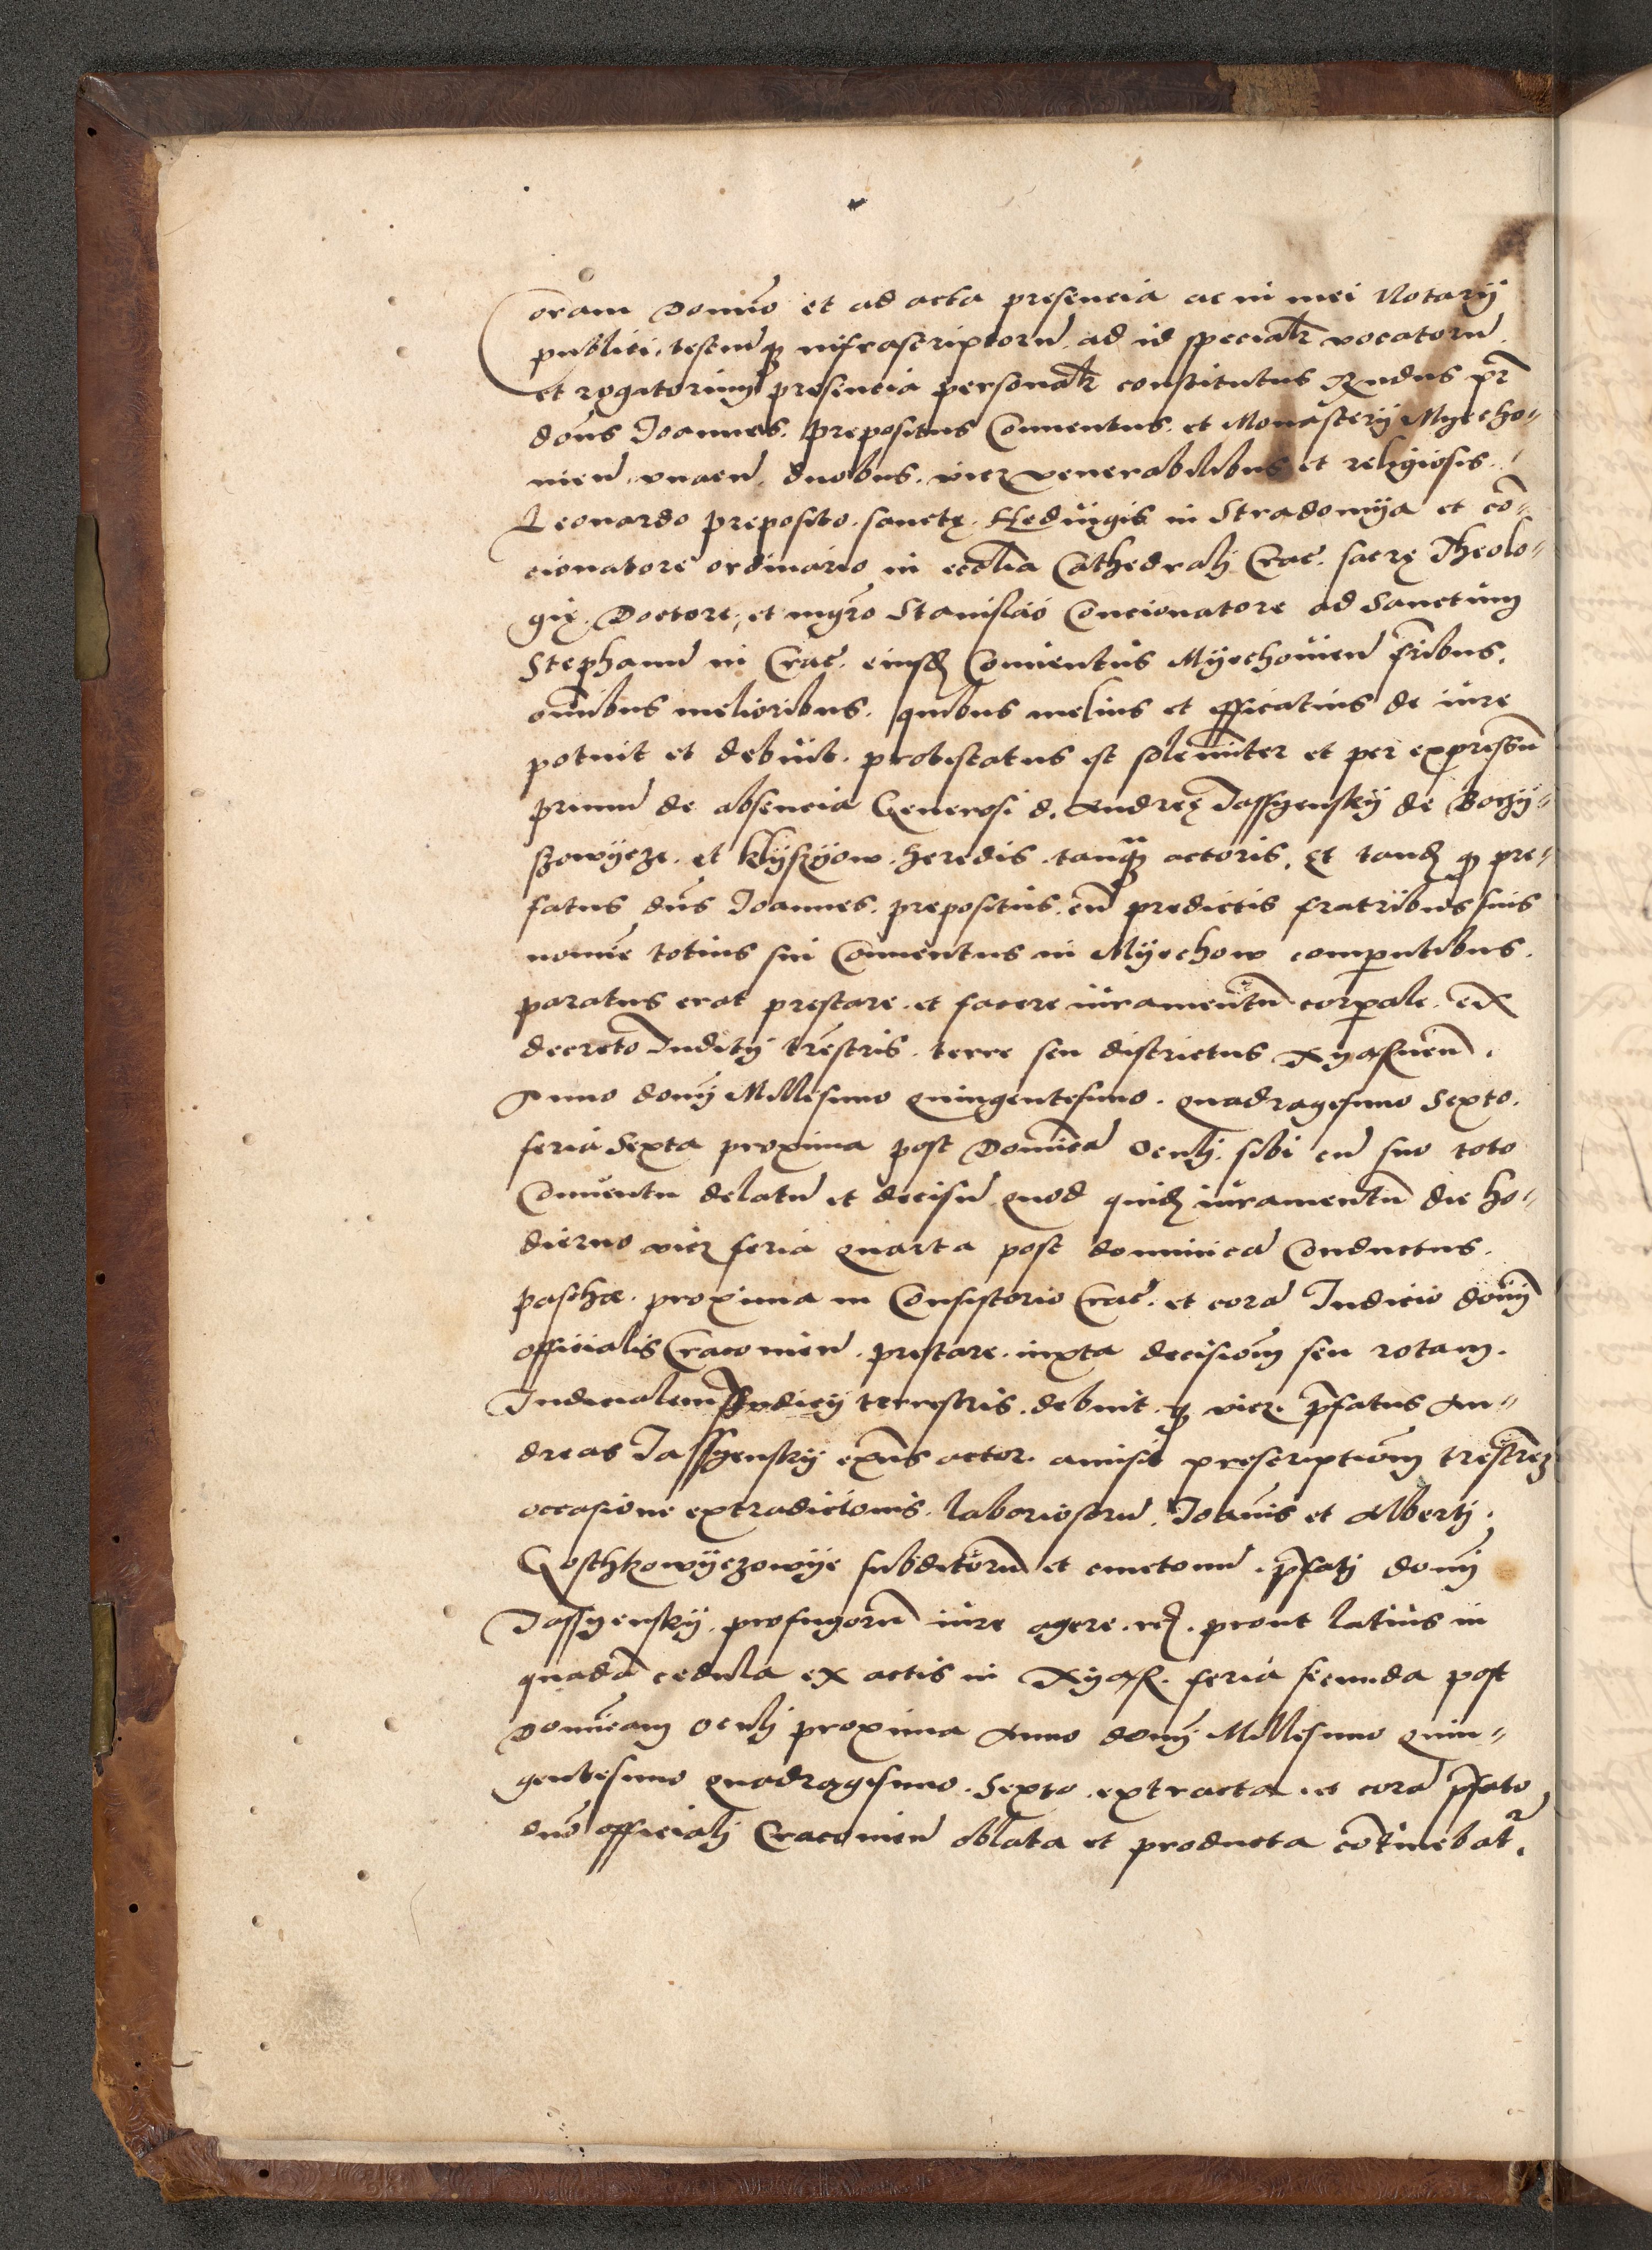 Coram Domino et ad acta presencia ac in mei Notarij
publici, testiumq; infrascriptoru ad id specialr vocatoru
et rogatorum presencia personalr constitutus Rndus pr
dons Joannes prepositus Conuentus et Monasterij Myecho-
uien unacu duobus viez venerabilibus et religiosis
Leonardo preposito sanctę Heduigis in Stradomya et co-
cionatore ordinario in ecclia Cathedralj Crac. sacrę Theolo-
gię Doctore, et mgro Stanislao Concionatore ad Sanctum
Stephanu in Crac. eiusd Conuentus Myechouien fribus,
omibus melioribus quibus melius et efficatius de iure
potuit et debuit protestatus est solemniter et per expressu
primu de absencia Generosi d. Andreę Jassyensky de
et heredis tanq actoris. Et tand q pre-
fatus dns Joannes prepositus cu predictis fratribus suis
nomie totius sui Conuentus in Myechow compntibus
paratus erat prestare et facere iuramentu corporale ex
decreto Judicij trestris terre seu districtus Xyasnen.
Anno domj Millesimo quingentesimo quadragesimo Sexto
feria Sexta proxima post Domica Oculj sibi cu suo toto
Conuentu delatu et decisu quod quid iuramentu die ho-
dierno viez feria quarta post dominica Conductus
paschæ proxima in Consistorio Crac. et cora Judicio domj
officialis Cracouien prestare iuxta decisiom seu rotam
Judicialem Judicij terrestris debuit q viez pfatus An-
dreas Jassyensky exns actor amisit prescriptiom trestrez
occasione extradictionis laboriosoru Joannis et Albertj
Goschkowyczowye subditoru et cmetonu pfatj domj
Jassyensky profugoru iure agere re prout latius in
quada cedula ex actis in Xyas. feria secunda post
Domicam Oculj proxima Anno domj Millesimo quin-
gentesimo quadragesimo Sexto extracta et cora pfato
dno officialj Cracouien oblata et producta continebatr.